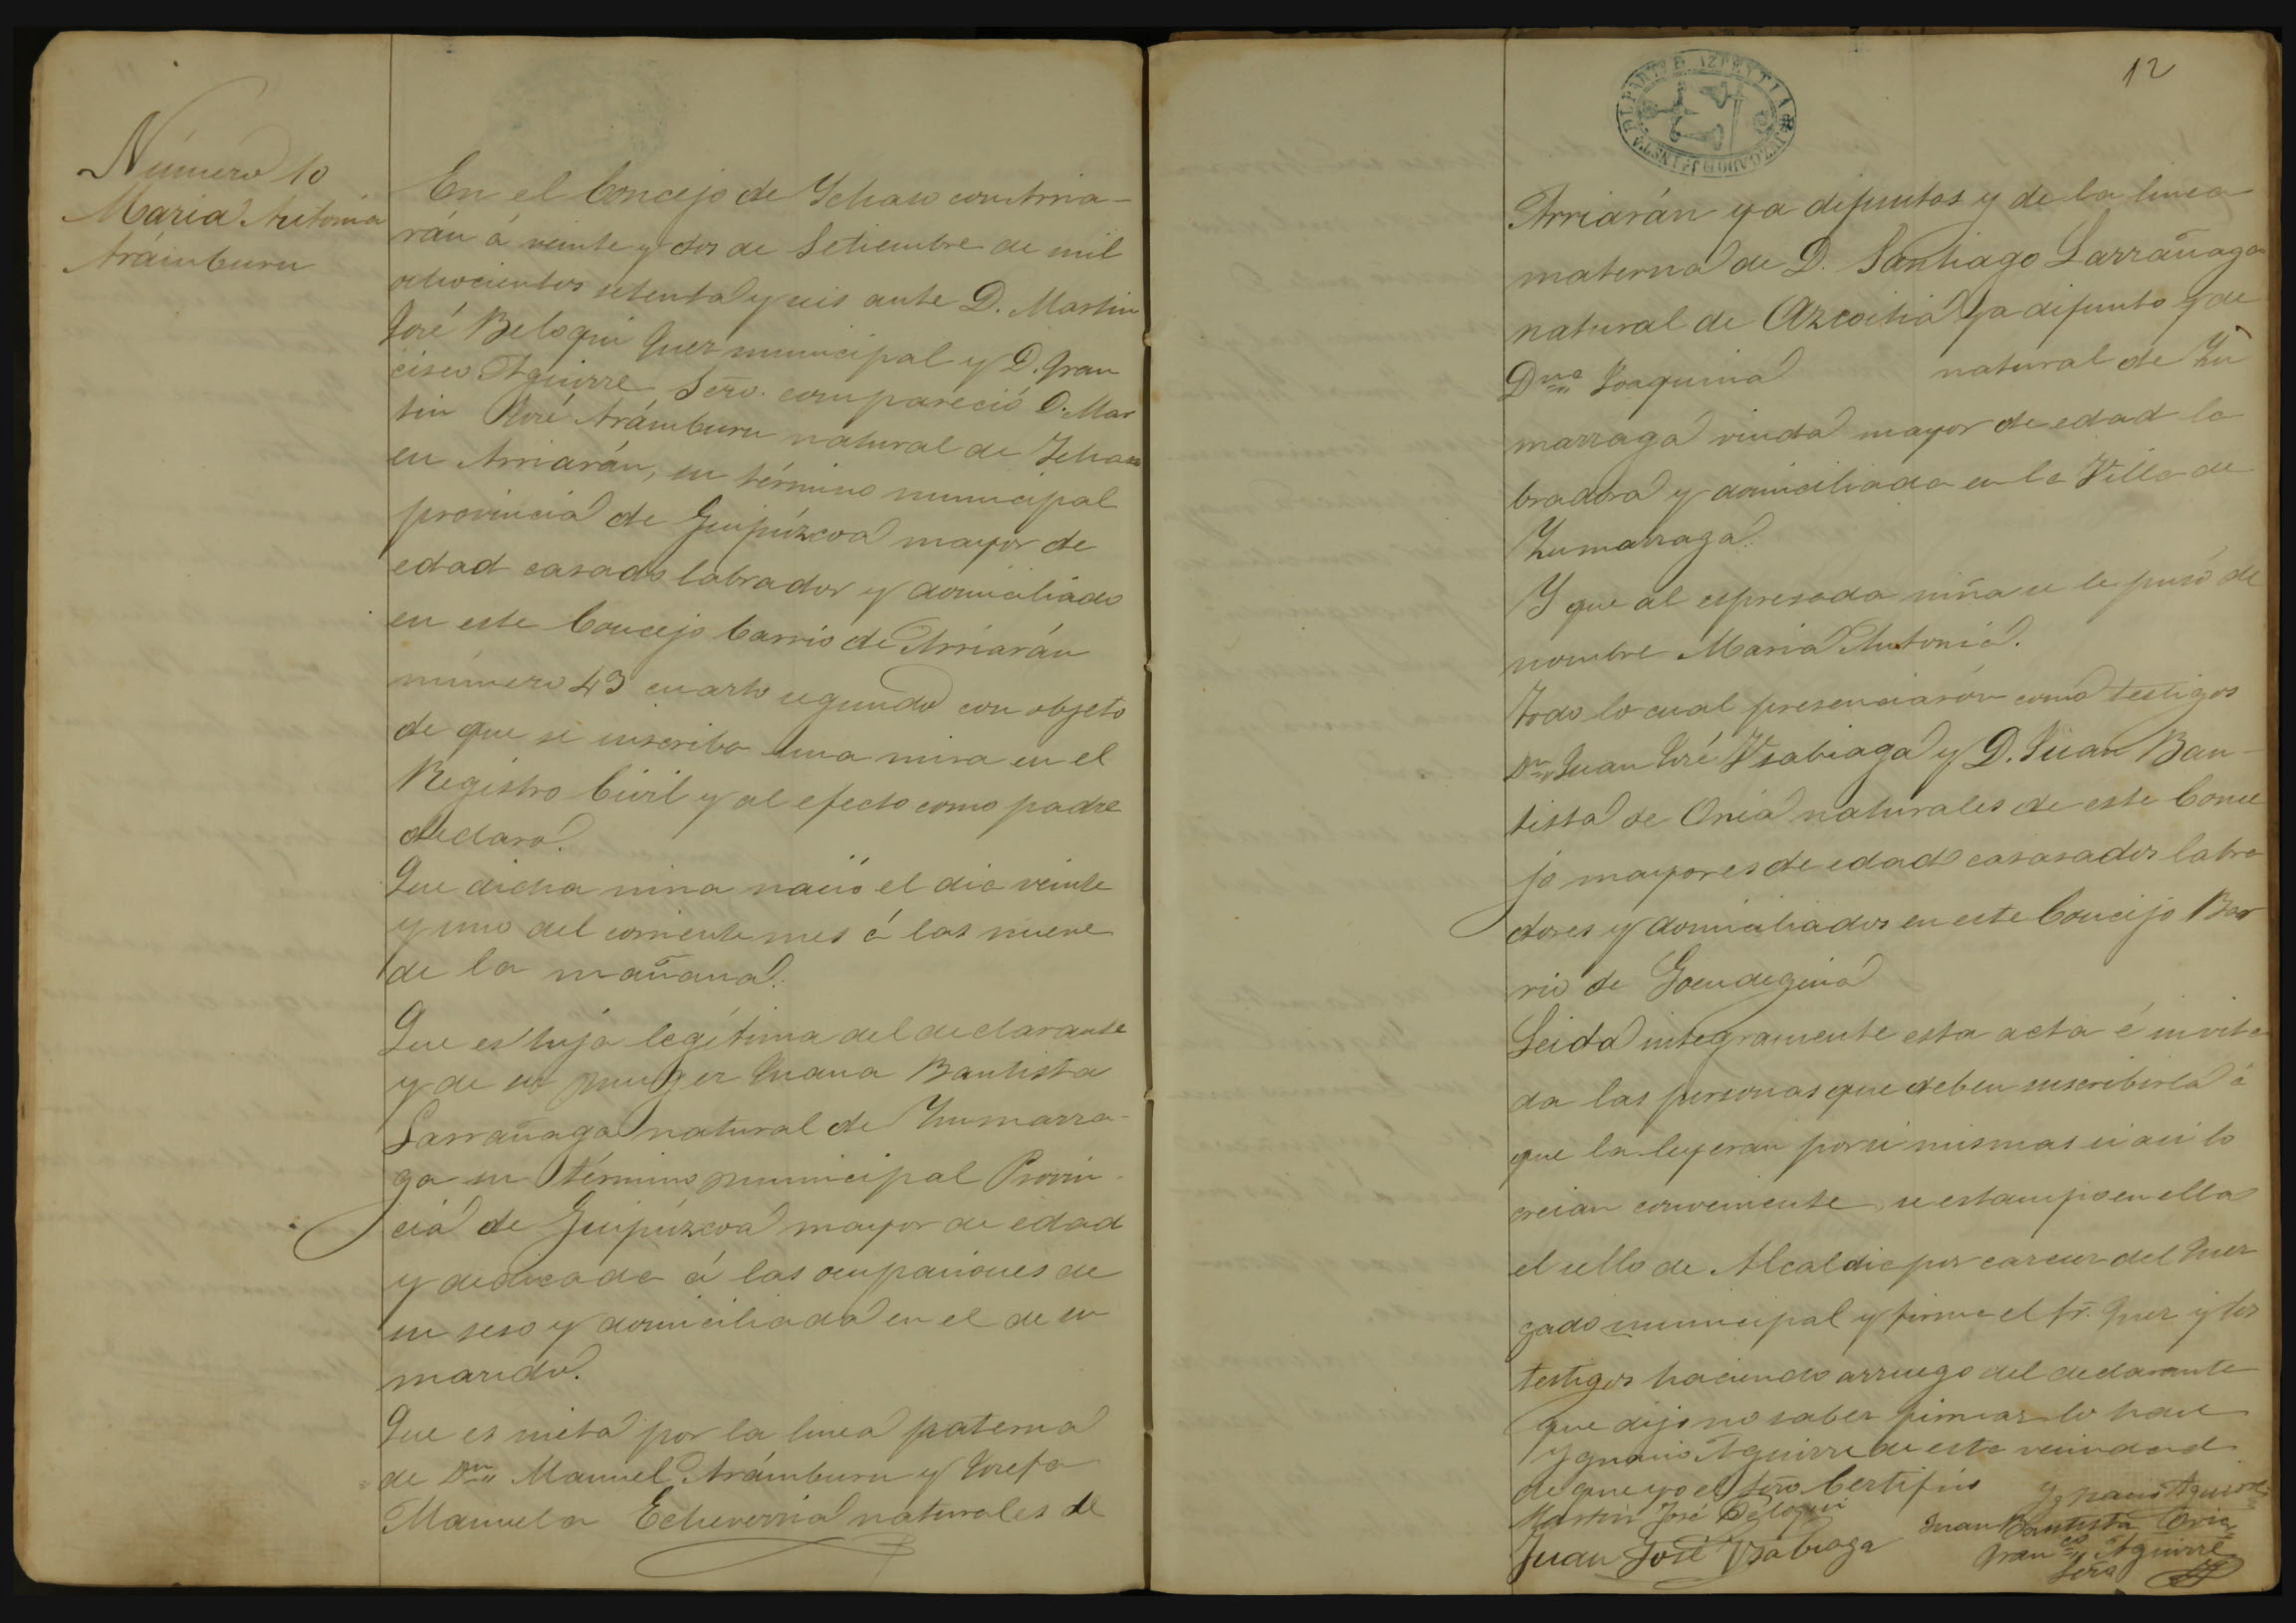 Número 10
Maria Antonia
Arámburu
En el Concejo de Ychaso con Arria-
rán á veinte y dos de Setiembre de mil
ochocientos setenta y seis ante D. Martin
José Beloqui Juez municipal y D. Fran
cisco Aguirre Srio. compareció D. Mar
tin José Arámburu natural de Ychaso
en Arriarán, su término municipal
provincia de Guipúzcoa mayor de
edad casado labrador y domiciliado
en este Concejo barrio de Arriarán
número 43 cuarto segundo con objeto
de que se inscriba una nina en el
Registro Civil y al efecto como padre
declaró.
Que dicha nina nació el dia veinte
y uno del corriente mes á las nueve
de la mañana.
Que es hija legítima del declarante
y de su muger Juana Bautista
Larrañaga natural de Zumarra-
ga su término municipal Provin-
cia de Guipúzcoa mayor de edad
y dedicada á las ocupaciones de
su seso y domiciliada en el de su
marido.
Que es nieta por la linea paterna
de Dn Manuel Arámburu y Josefa
Manuela Echeverria naturales de
12
JUZGADO DE 1ª INSTA DEL PARTº DE AZPEYTIA
Arriarán ya difuntos y de la linea
materna de D. Santiago Larrañaga
natural de Azcoitia ya difunto y de
Dna Joaquina natural de Zu
marraga viuda mayor de edad la
bradora y domiciliada en la Villa de
Zumarraga.
Y que al espresada niña se le puso de
nombre Maria Antonia.
Todo lo cual presenciarón como testigos
Dn Juan José Usabiaga y D. Juan Bau-
tista de Oria naturales de este Conce
jo mayores de edad casasados labra
dores y domiciliados en este Concejo Bar
rio de Goendegina
Leida integramente esta acta é invita
da las personas que deben suscribirla á
que la leyeran por si mismas si asi lo
creian conveniente, se estampó en ella
el sello de Alcaldia por carecer del Juz
gado municipal y firma el Sr. Juez y los
testigos haciendo arruego del declarante
que dijo no saber firmar lo hace
Ygnacio Aguirre de esta vecindad
de que yo el Srio Certifico
Ygnacio Aguirre
Martin José Beloqui
Juan Bautista Oria
Juan José Usabiaga
Franco Aguirre
Srio